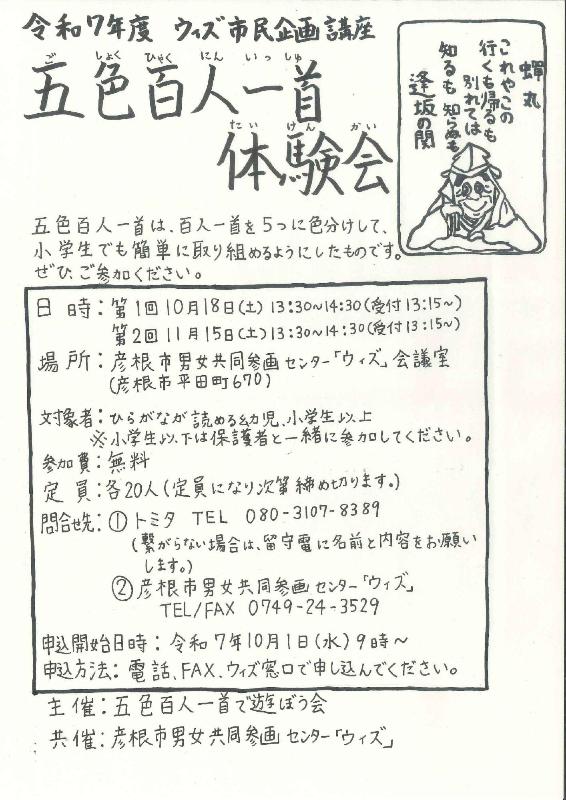 令和7年度 ウィズ市民企画講座
ご しょく ひゃく にん いっ しゅ
五色百人一首
たい けん かい
体験会
蝉丸
これやこの
行くも帰るも
別れては
知るも 知らぬも
逢坂の関
五色百人一首は、百人一首を5つに色分けして、
小学生でも簡単に取り組めるようにしたものです。
ぜひ、ご参加ください。
日時：第1回 10月18日(土) 13:30~14:30(受付13:15~)
第2回 11月15日(土) 13:30~14:30(受付13:15~)
場所：彦根市男女共同参画センター「ウィズ」会議室
(彦根市平田町670)
対象者：ひらがなが読める幼児、小学生以上
※小学生以下は保護者と一緒に参加してください。
参加費：無料
定員：各20人(定員になり次第締め切ります。)
問合せ先：①トミタ TEL 080-3107-8389
(繋がらない場合は、留守電に名前と内容をお願い
します。)
②彦根市男女共同参画センター「ウィズ」
TEL/FAX 0749-24-3529
申込開始日時：令和7年10月1日(水)9時~
申込方法：電話、FAX、ウィズ窓口で申し込んでください。
主催：五色百人一首で遊ぼう会
共催：彦根市男女共同参画センター「ウィズ」